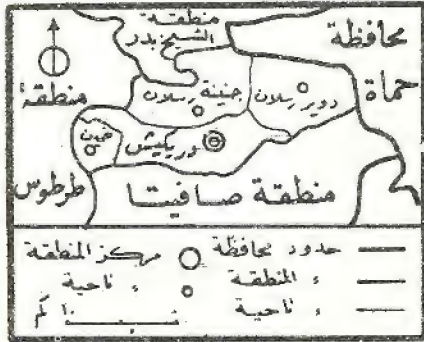 منطقة
الشيخ بدر
محافظة
حماة
منطقة
طرطوس
جنينة رسلان
دوير رسلان
دريكيش
حمين
منطقة صافيتا
حدود محافظة
مركز المنطقة
〃 المنطقة
〃 ناحية
〃 ناحية
١٠ كم